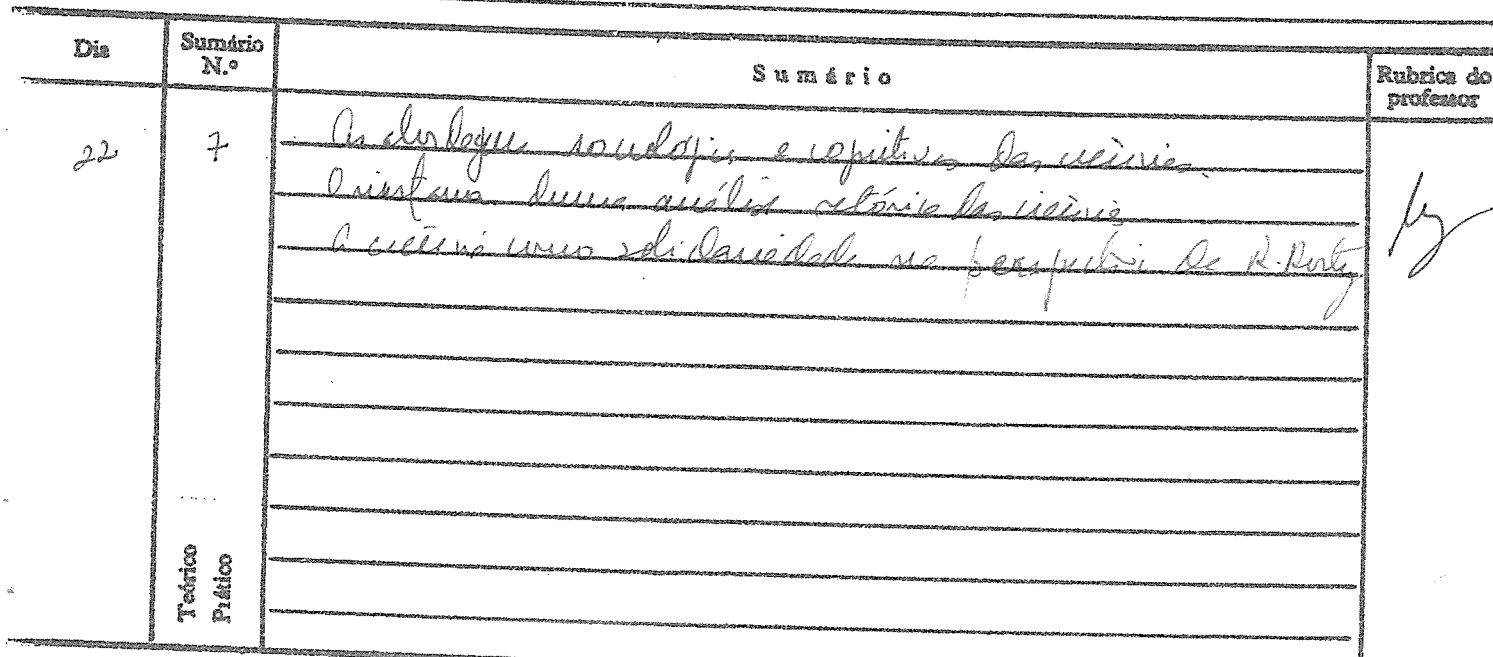 Dia
Sumário N.º
Sumário
Rubrica do professor
22
7
As abordagens sociológica e cognitiva das ciências.
duma análise retórica das ciências
A ciência como solidariedade na perspectiva de R. Rorty
Teórico
Prático